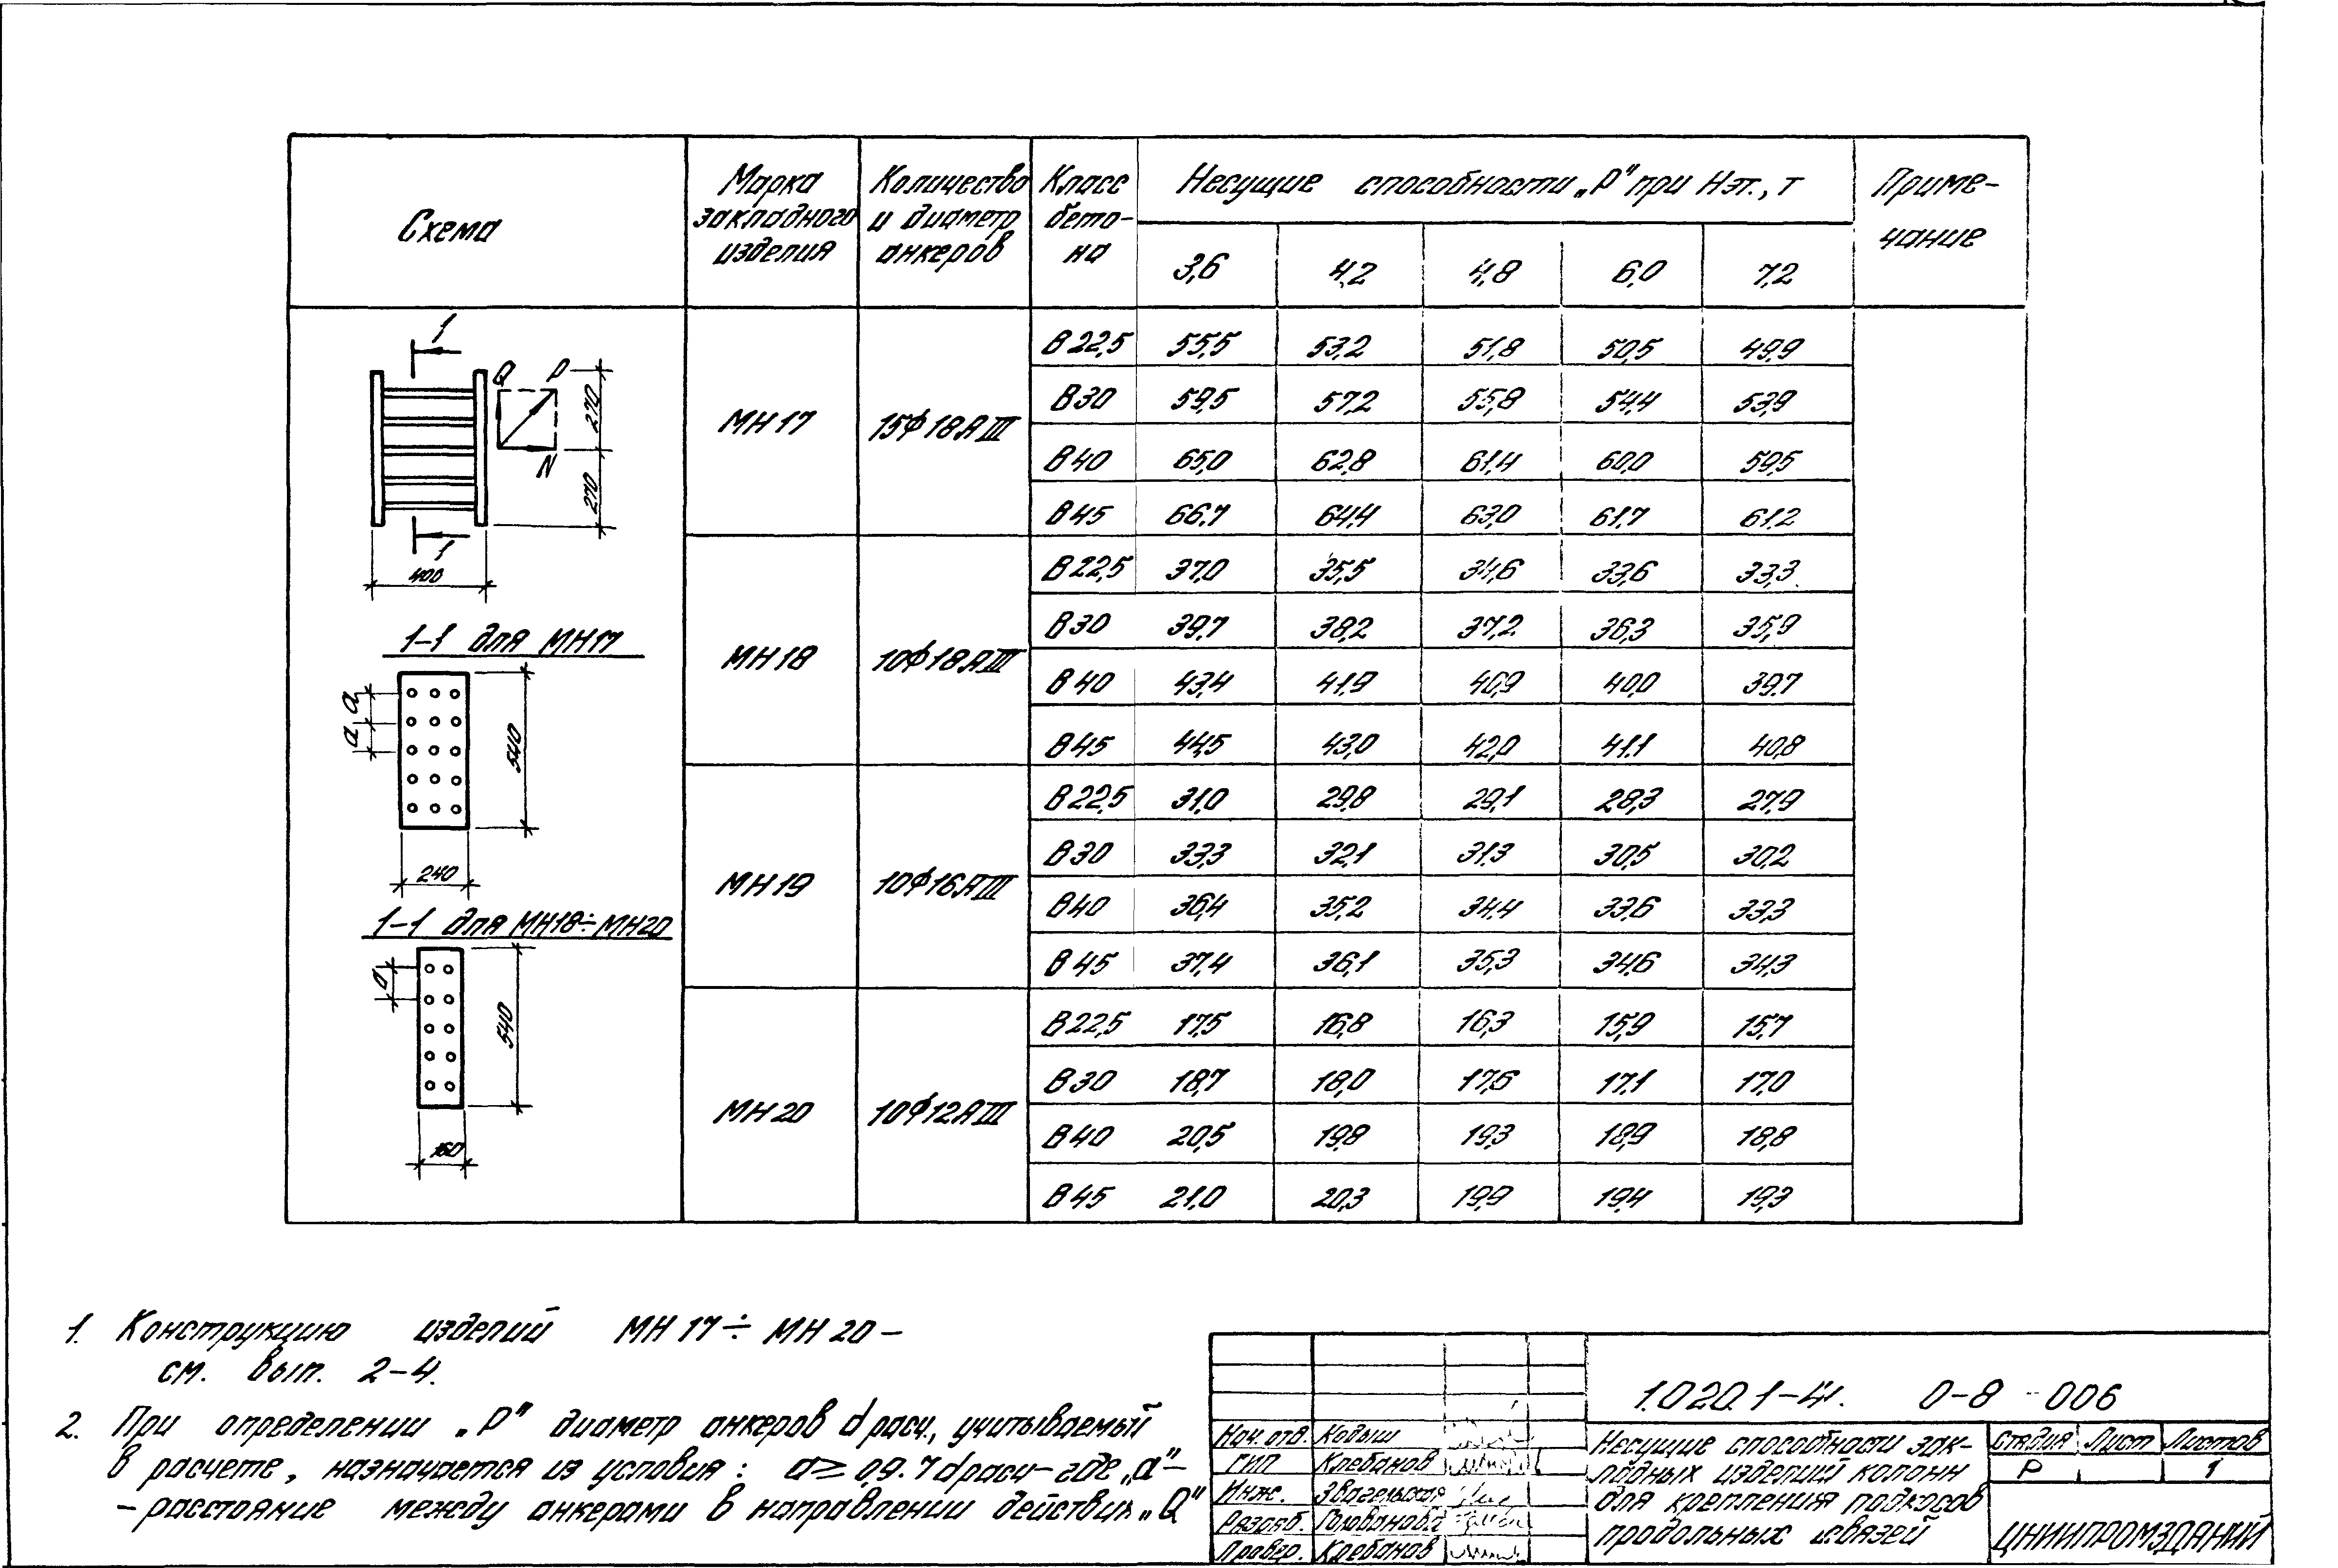 Схема
Марка закладного изделия
Количество и диаметр анкеров
Класс бето-на
Несущие способности „Р" при Нэт., т
Приме-чание
3,6 4,2 4,8 6,0 7,2
МН 17 15Ф18АIII
В 22,5 55,5 53,2 51,8 50,5 49,9
В 30 59,5 57,2 55,8 54,4 53,9
В 40 65,0 62,8 61,4 60,0 59,5
В 45 66,7 64,4 63,0 61,7 61,2
МН 18 10Ф18АIII
В 22,5 37,0 35,5 34,6 33,6 33,3
В 30 39,7 38,2 37,2 36,3 35,9
В 40 43,4 41,9 40,9 40,0 39,7
В 45 44,5 43,0 42,0 41,1 40,8
МН 19 10Ф16АIII
В 22,5 31,0 29,8 29,1 28,3 27,9
В 30 33,3 32,1 31,3 30,5 30,2
В 40 36,4 35,2 34,4 33,6 33,3
В 45 37,4 36,1 35,3 34,6 34,3
МН 20 10Ф12АIII
В 22,5 17,5 16,8 16,3 15,9 15,7
В 30 18,7 18,0 17,6 17,1 17,0
В 40 20,5 19,8 19,3 18,9 18,8
В 45 21,0 20,3 19,9 19,4 19,3
1
Q Р
270
N
270
1
400
1-1 для МН17
а
а
540
240
1-1 для МН18÷МН20
а
540
160
1. Конструкцию изделий МН 17 ÷ МН 20 –
см. вып. 2-4.
2. При определении „Р" диаметр анкеров d расч., учитываемый
в расчете, назначается из условия: а ≥ 0,9·7 d расч – где „а" –
– расстояние между анкерами в направлении действия „Q"
1.020.1-4. 0-8 - 006
Нач. отд. Кодыш
ГИП Клебанов
Инж. Звагельская
Разраб. Голованова
Провер. Клебанов
Несущие способности зак-
ладных изделий колонн
для крепления подкосов
продольных связей
Стадия Лист Листов
Р 1
ЦНИИПРОМЗДАНИЙ